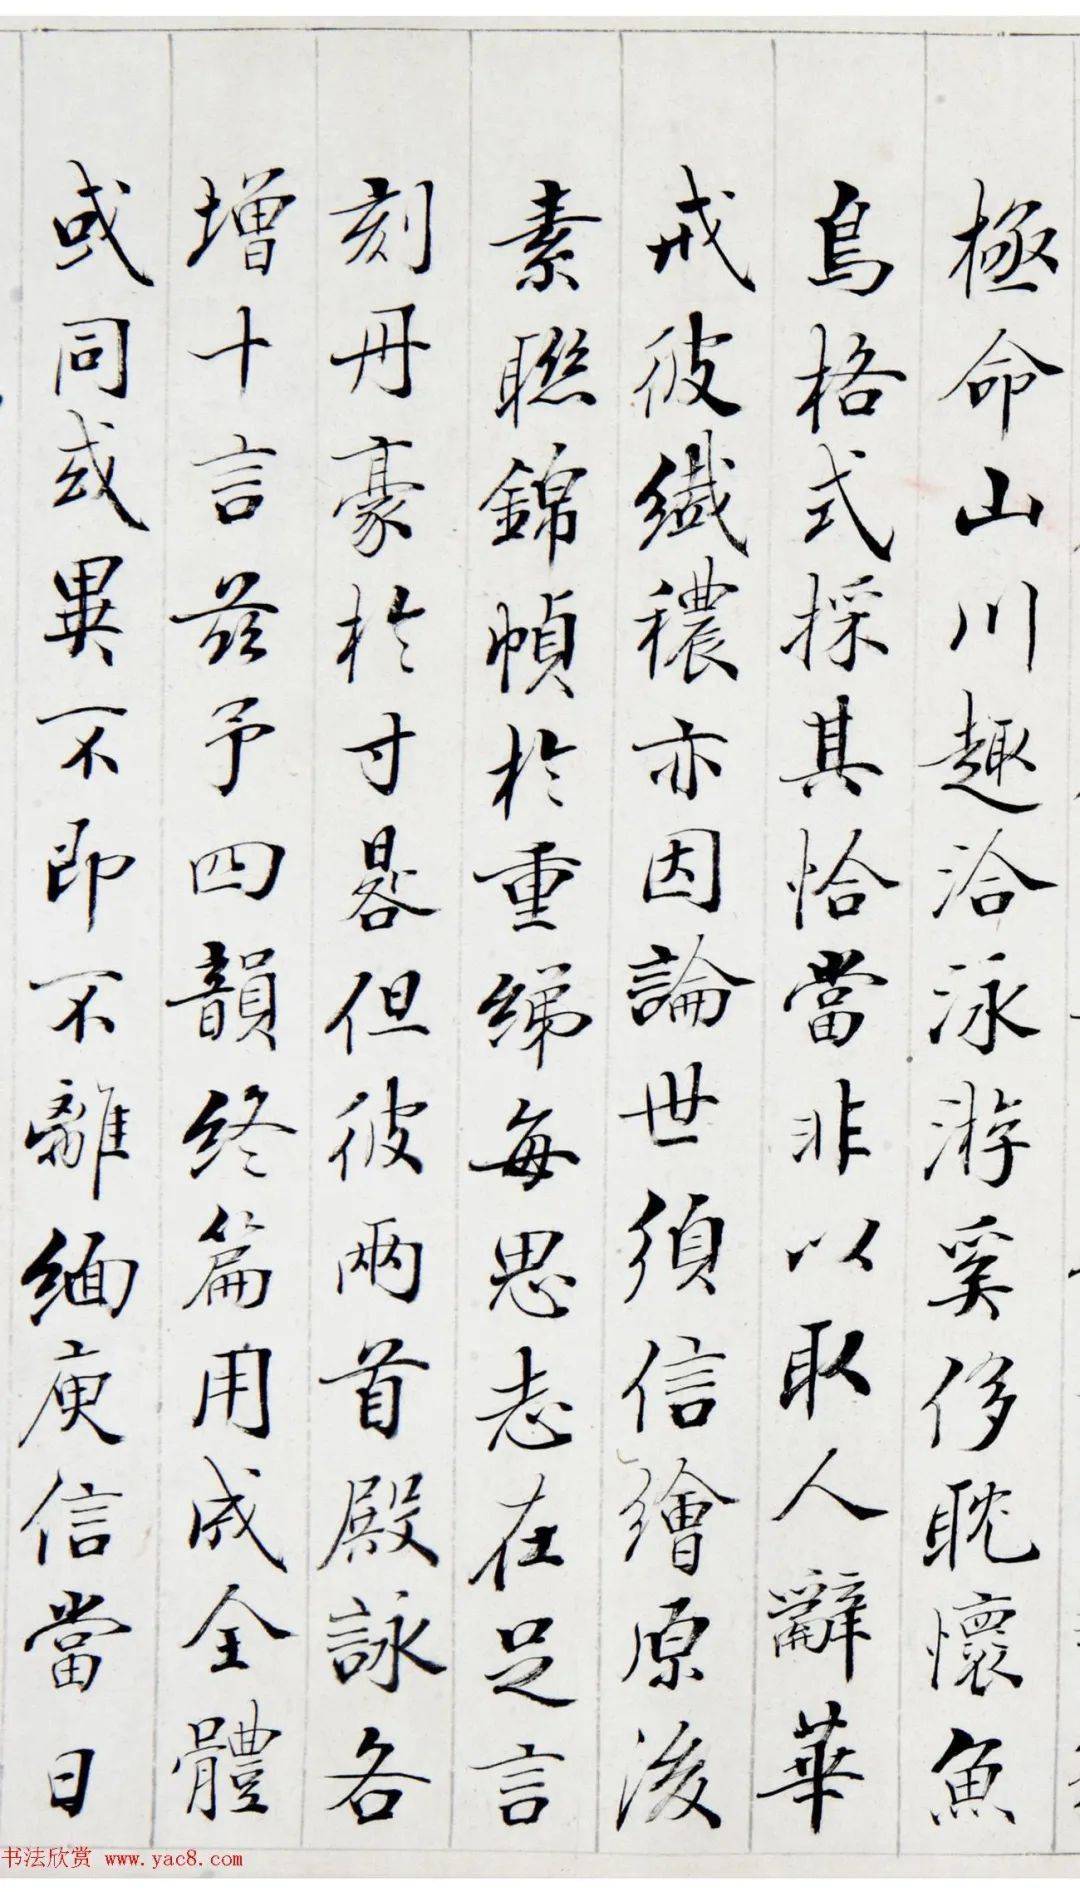 極命山川趣洽泳游奚侈耽懷魚
鳥格式採其恰當非以取人辭華
戒彼纖穠亦因論世須信繪原後
素聯錦幀於重綈每思志在足言
刻丹豪於寸晷但彼兩首殿詠各
增十言兹予四韻終篇用成全體
或同或異不即不離緬庾信當日
书法欣赏 www.yac8.com